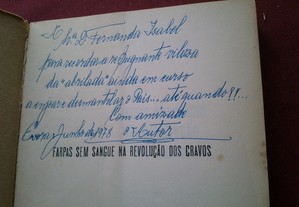 À Sr.ª D. Fernanda Isabel
para recordar a repugnante vileza
da "abrilada" ainda em curso
a enpare desmantelar o País... até quando?!...
Com amizade
Evora, Junho de 1978 o Autor
FARPAS SEM SANGUE NA REVOLUÇÃO DOS CRAVOS